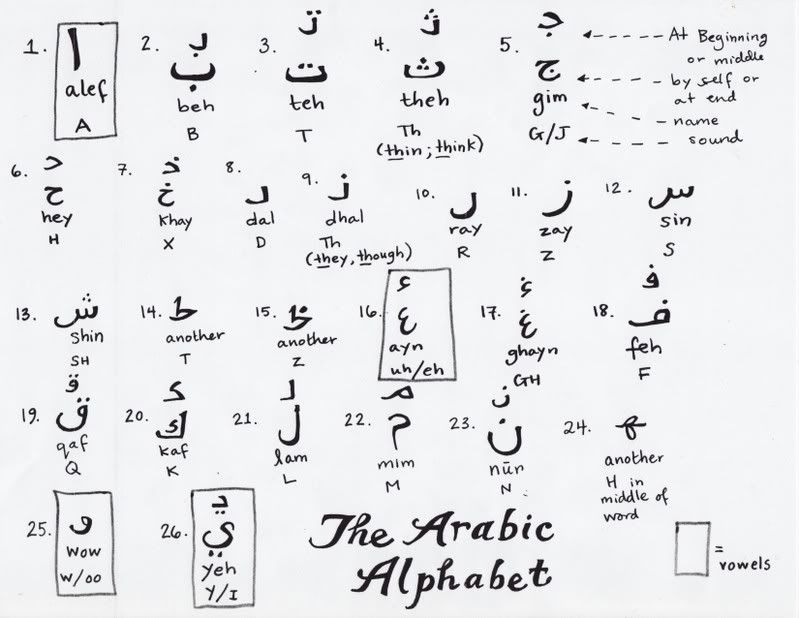 1. ا
alef
A
2. بـ
ب
beh
B
3. تـ
ت
teh
T
4. ثـ
ث
theh
Th
(thin; think)
5. جـ
ج
gim
G/J
At Beginning
or middle
by self or
at end
name
sound
6. حـ
ح
hey
H
7. خـ
خ
khay
X
8. د
dal
D
9. ذ
dhal
Th
(they, though)
10. ر
ray
R
11. ز
zay
Z
12. س
sin
S
13. ش
shin
SH
14. ط
another
T
15. ظ
another
Z
16. عـ
ع
ayn
uh/eh
17. غـ
غ
ghayn
GH
18. فـ
ف
feh
F
19. قـ
ق
qaf
Q
20. كـ
ك
kaf
K
21. لـ
ل
lam
L
22. مـ
م
mim
M
23. نـ
ن
nūn
N
24. ـهـ
another
H in
middle of
word
25. و
wow
w/oo
26. يـ
ي
yeh
Y/I
The Arabic
Alphabet
= vowels